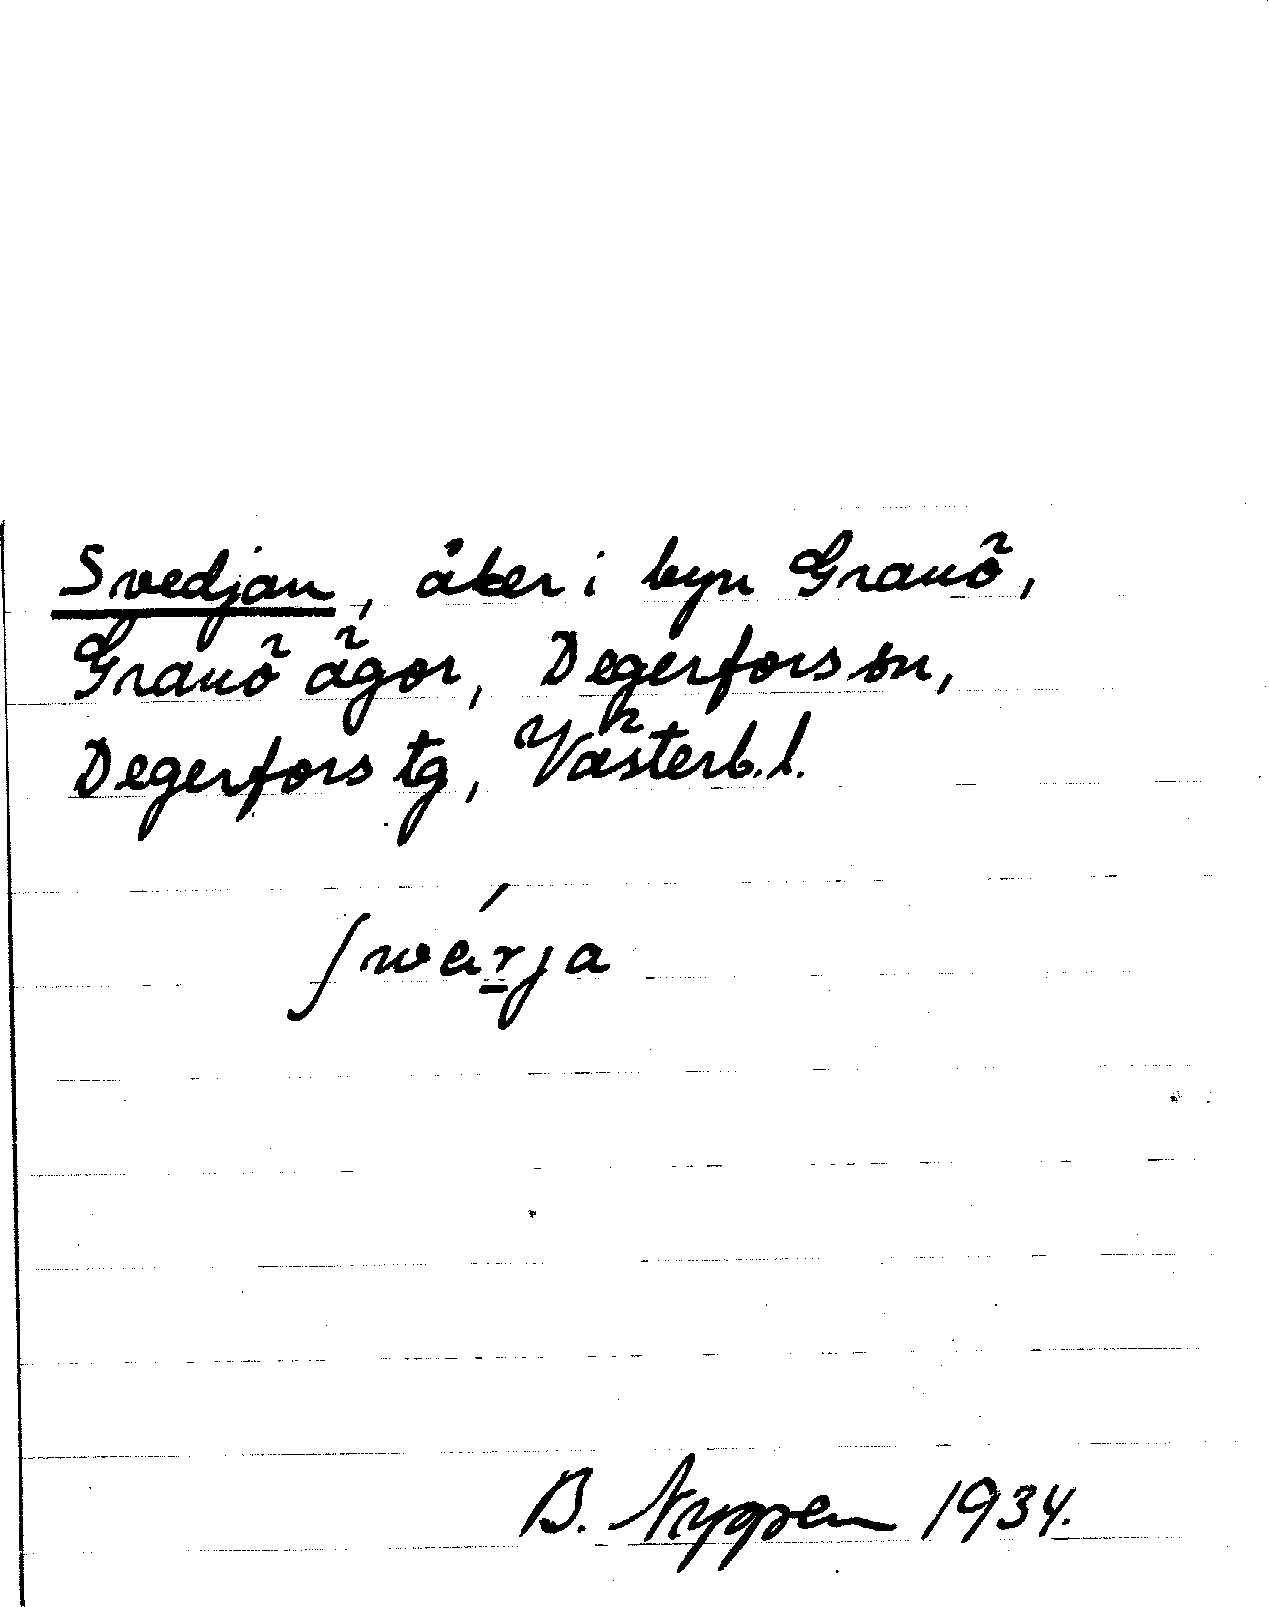 Svedjan, åker i byn Granö,
Granö ägor, Degerfors sn,
Degerfors tg, Västerb. l.
ʃwærja
B. Nygren 1934.